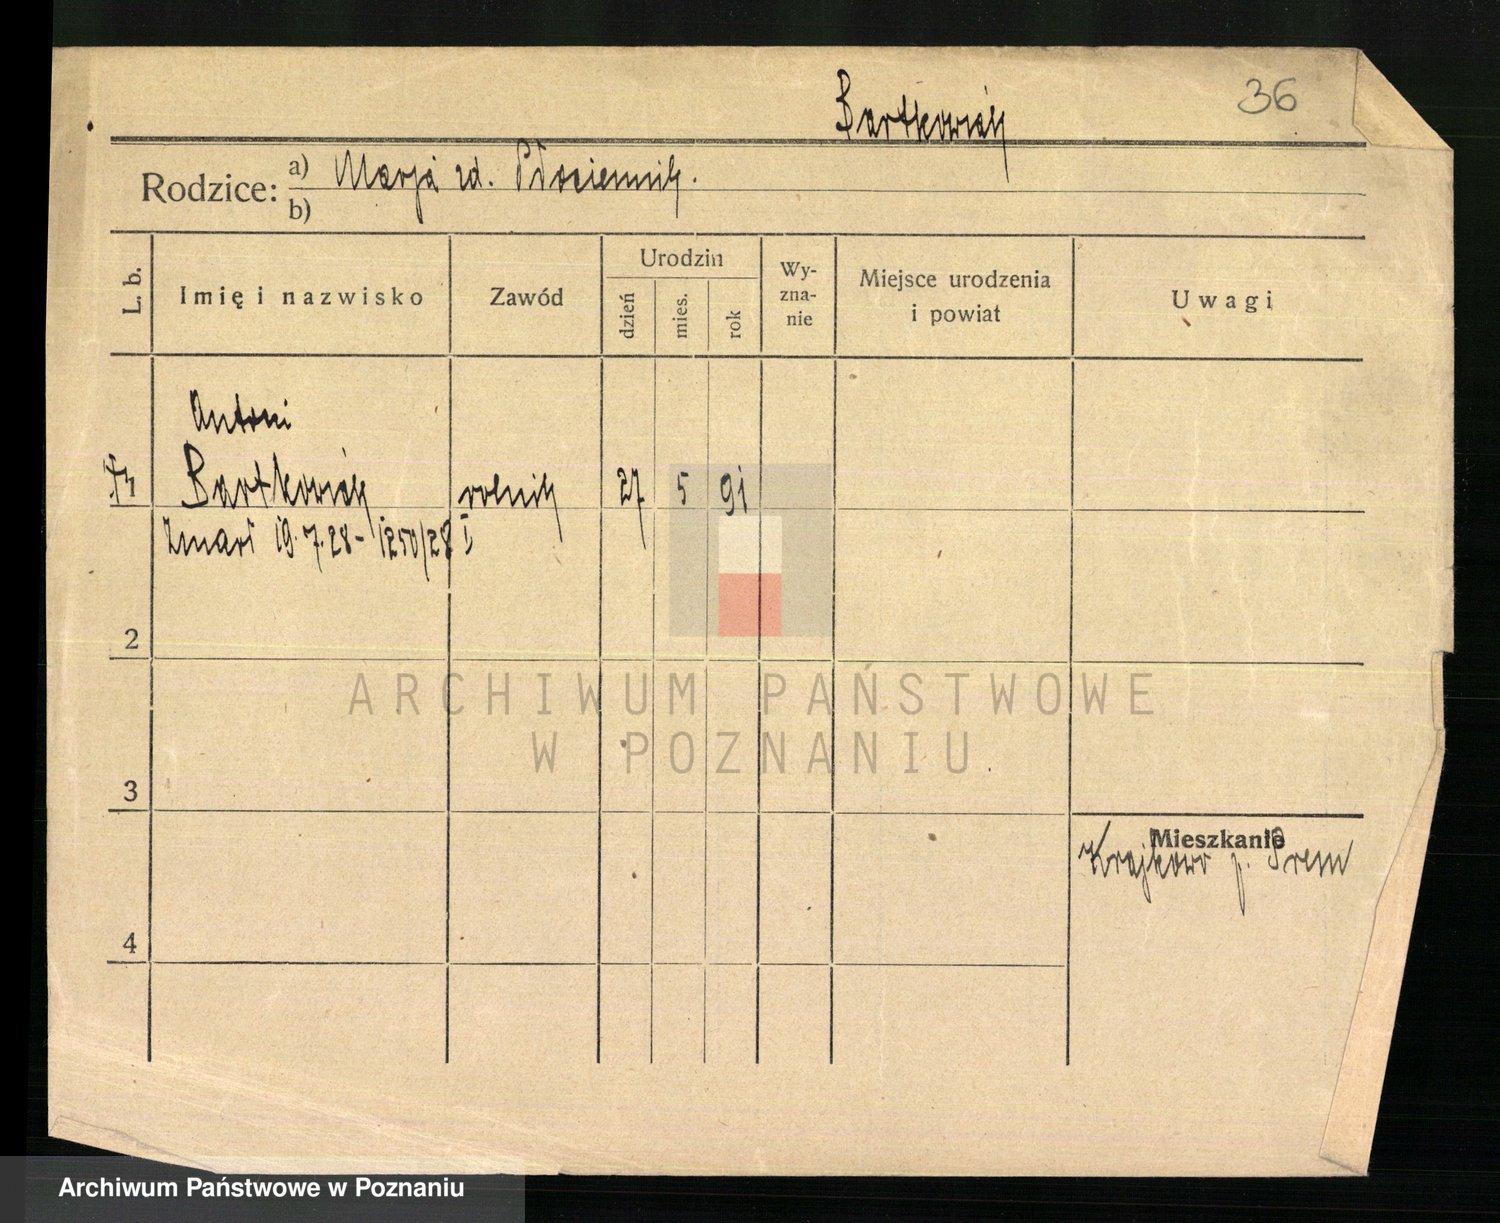 36
Bartkowiak
Rodzice: a) Marja zd. Płóciennik.
b)
L. b.
Imię i nazwisko
Zawód
Urodzin
dzień
mies.
rok
Wy-
zna-
nie
Miejsce urodzenia
i powiat
Uwagi
Antoni
1 Bartkowiak rolnik 27 5 91
Zmarł 19.7.28 - 1250/28 I
2
3
4
Mieszkanie
Krajkowo p. Śrem
ARCHIWUM PAŃSTWOWE
W POZNANIU
Archiwum Państwowe w Poznaniu